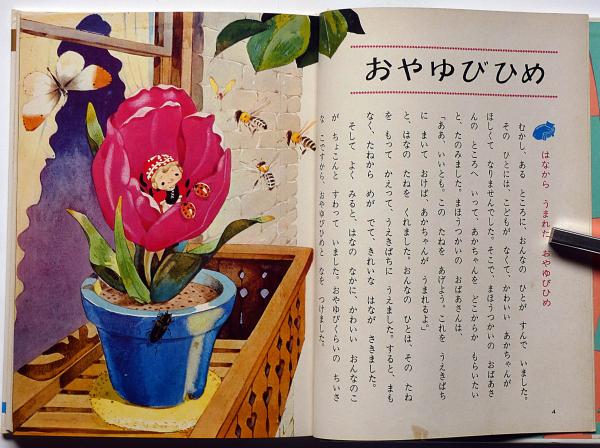 おやゆびひめ
はなから うまれた おやゆびひめ
むかし、ある ところに、おんなの ひとが すんで いました。
その ひとには、こどもが なくて、かわいい あかちゃんが
ほしくて なりませんでした。そこで、まほうつかいの おばあさ
んの ところへ いって、あかちゃんを どこからか もらいたい
と、たのみました。まほうつかいの おばあさんは、
「ああ、いいとも。この たねを あげよう。これを うえきばち
に まいて おけば、あかちゃんが うまれるよ」
と、はなの たねを くれました。おんなの ひとは、その たね
を もって かえって、うえきばちに うえました。すると、まも
なく、たねから めが でて、きれいな はなが さきました。
そして よく みると、はなの なかに、かわいい おんなのこ
が ちょこんと すわって いました。おやゆびくらいの ちいさ
な こですから、おやゆびひめと、なを つけました。
4